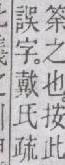 築之也按此
誤字。戴氏疏